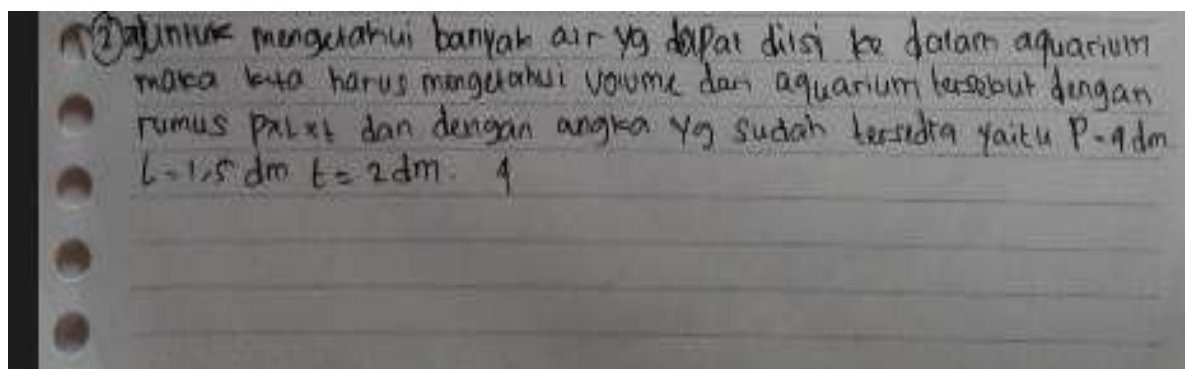 ② a) Untuk mengetahui banyak air yg dapat diisi ke dalam aquarium
maka kita harus mengetahui volume dari aquarium tersebut dengan
rumus pxlxt dan dengan angka yg sudah tersedia yaitu P=4 dm
L=1,5 dm t=2dm. 4